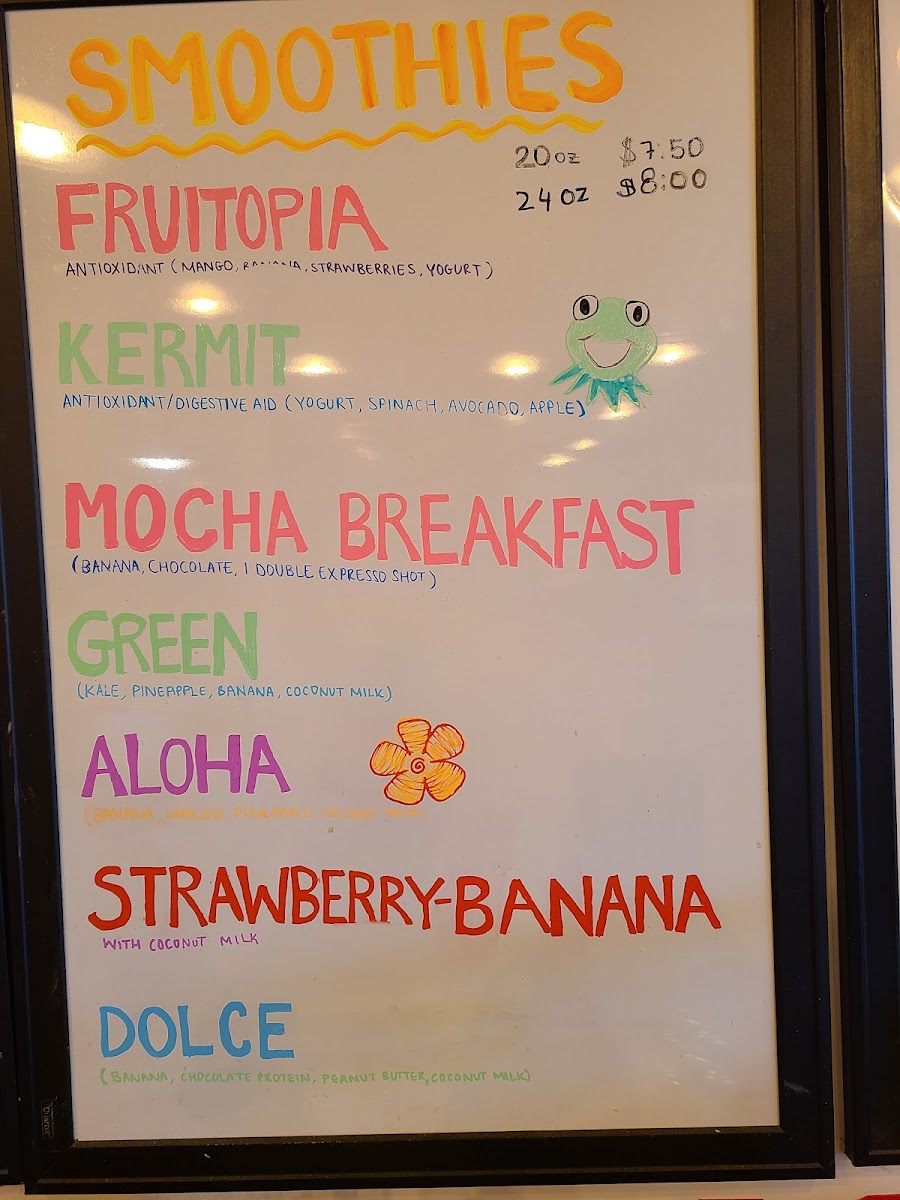 SMOOTHIES
20oz $7.50
24oz $8.00
FRUITOPIA
ANTIOXIDANT (MANGO, BANANA, STRAWBERRIES, YOGURT)
KERMIT
ANTIOXIDANT/DIGESTIVE AID (YOGURT, SPINACH, AVOCADO, APPLE)
MOCHA BREAKFAST
(BANANA, CHOCOLATE, 1 DOUBLE EXPRESSO SHOT)
GREEN
(KALE, PINEAPPLE, BANANA, COCONUT MILK)
ALOHA
(BANANA, MANGO, PINEAPPLE COCONUT MILK)
STRAWBERRY-BANANA
WITH COCONUT MILK
DOLCE
(BANANA, CHOCOLATE PROTEIN, PEANUT BUTTER, COCONUT MILK)